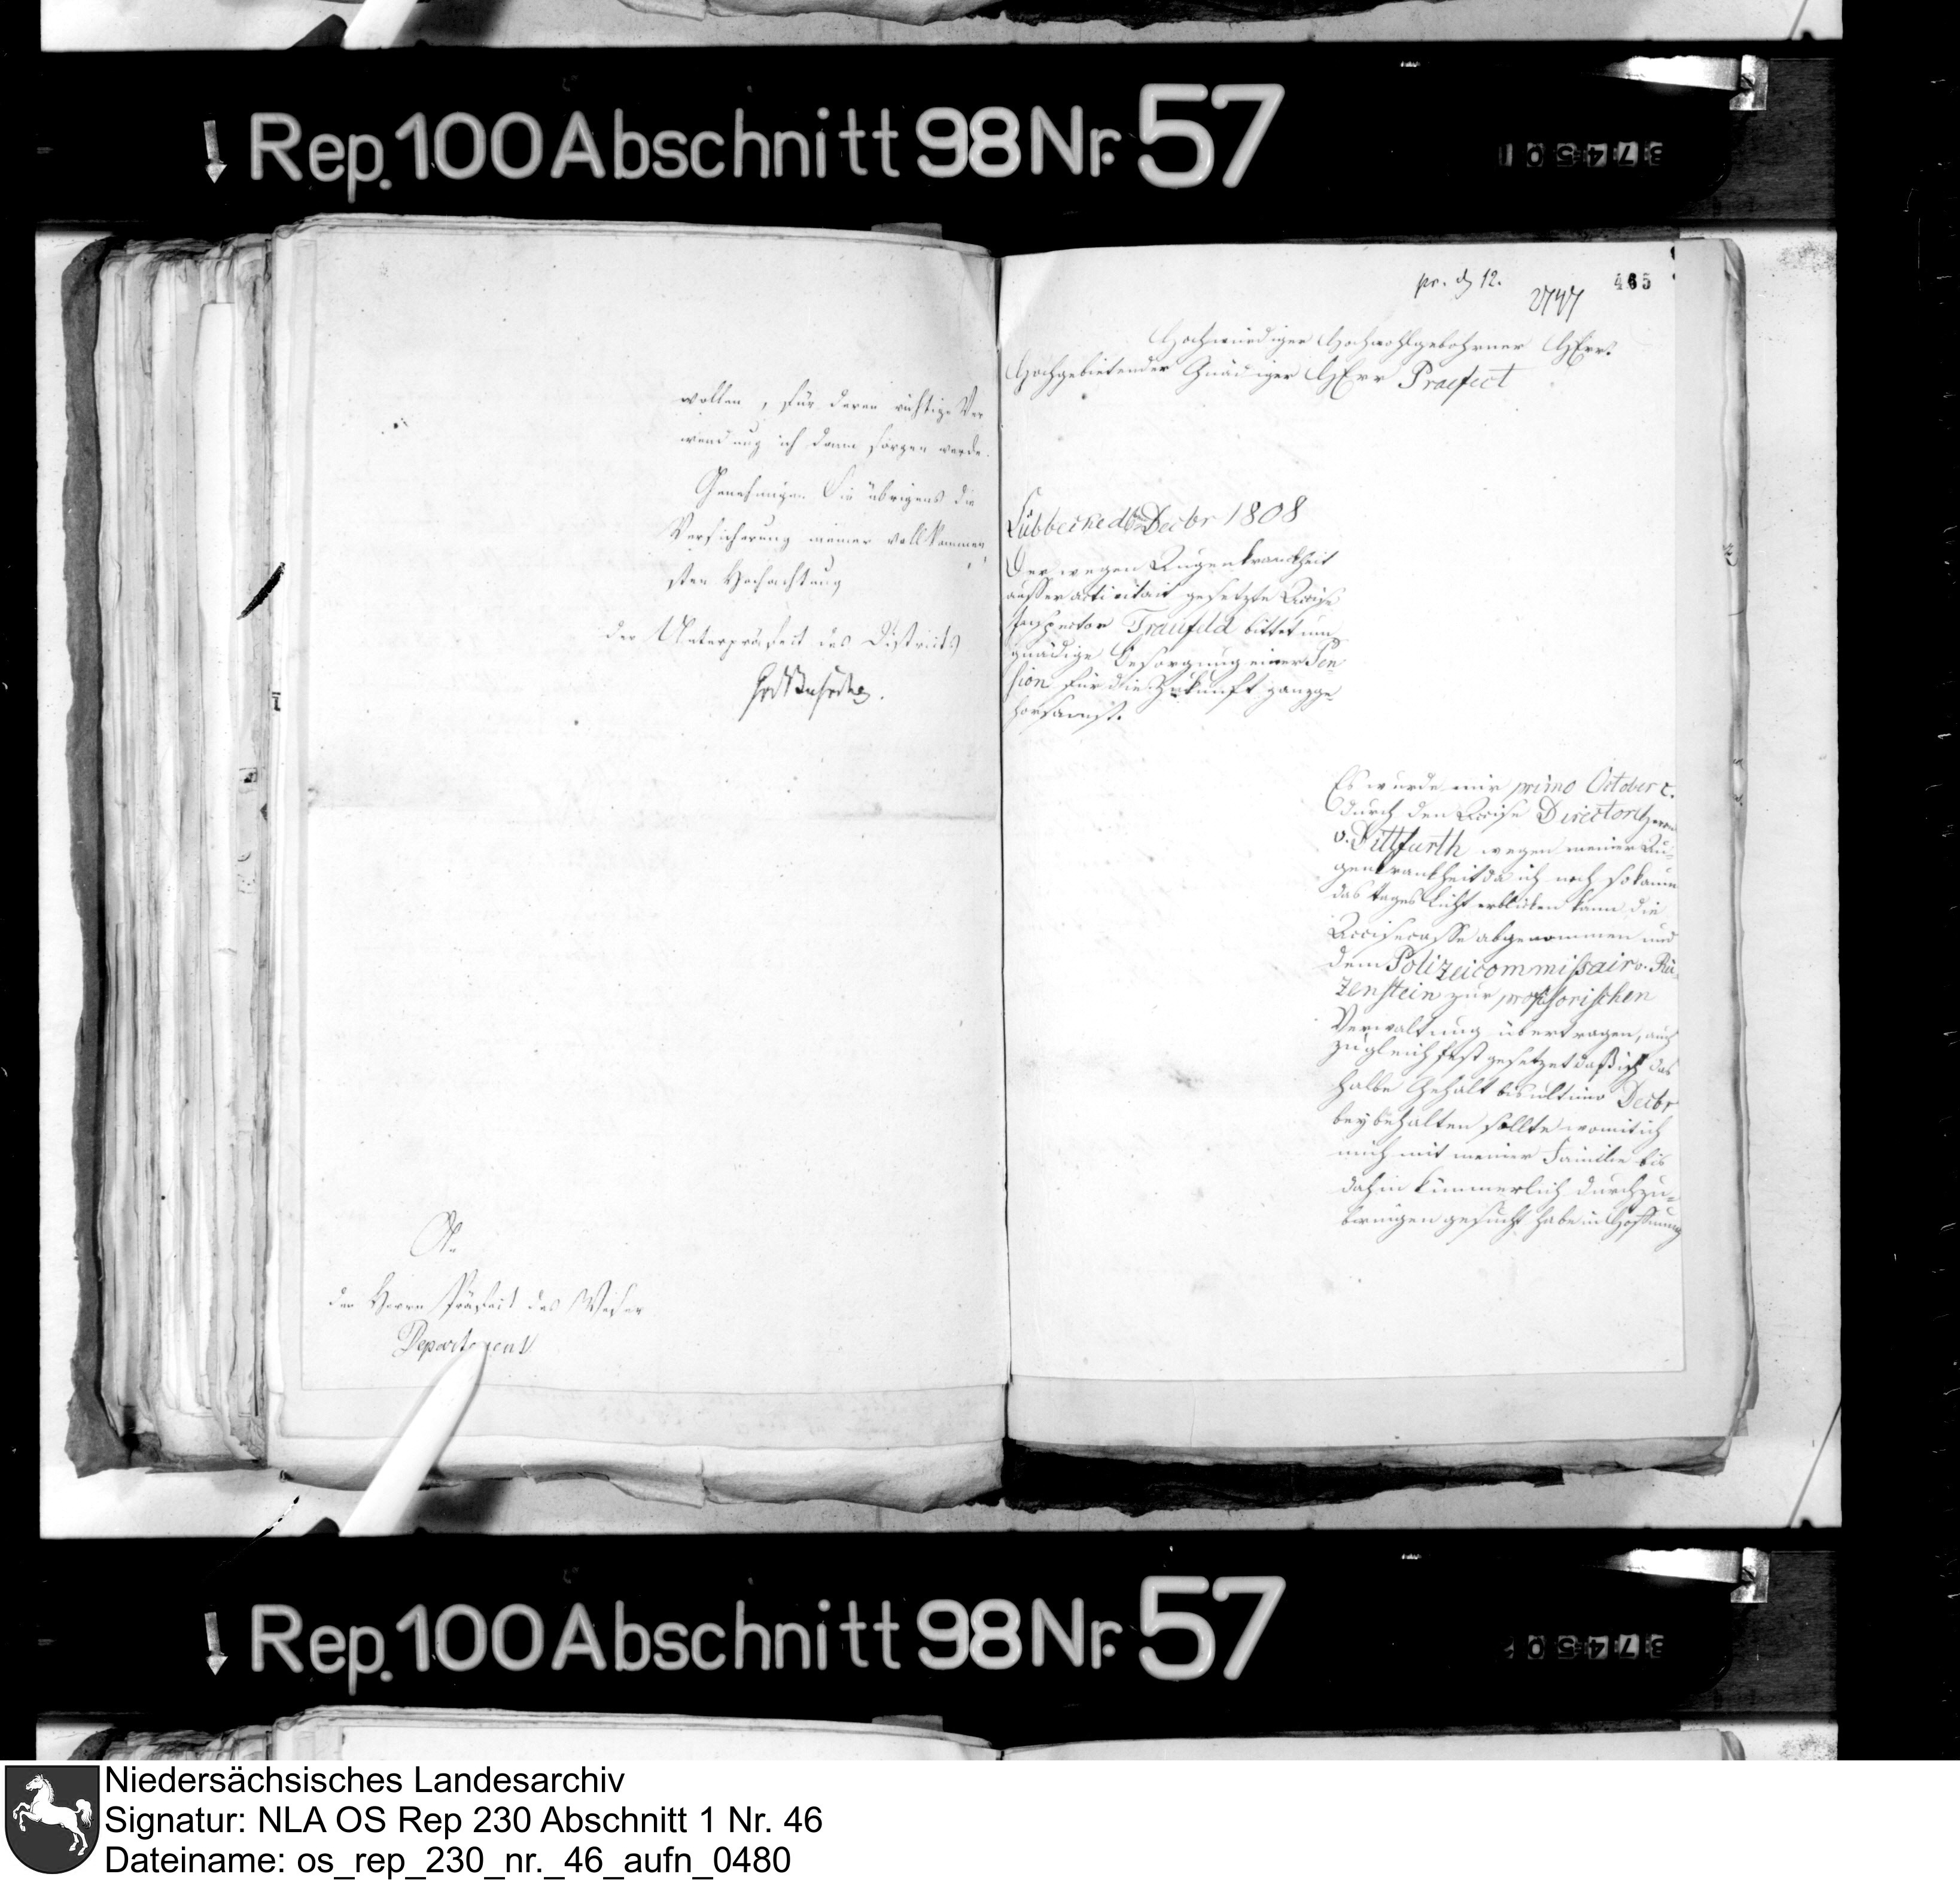 Rep. 100 Abschnitt 98 Nr. 57
37450
wollen, für deren richtige Ver
wendung ich dann sorgen werde.
Genehmigen Sie übrigens die
Versicherung meiner vollkommen,
sten Hochachtung
der Unterpräfect des Districts
An
den Herrn Präfect des Weser
Departement
pr. d 12.
2747
465
Hochwürdiger Hochwohlgebohrner HErr!
Hochgebietender Gnädiger HErr Praefect
Lübbecke Decbr 1808
Der wegen Augenkranckheit
ausser activitait gesetzte Accise
Inspector Traufeld bittet um
gnädige Besorgung einer Pen
sion für die Zukunft ganz ge-
horsamst.
Es wurde mir primo October c.
durch den Accise Director Herrn
v. Dittfurth wegen meiner Au-
genkrankheit da ich noch so kaum
das tages Licht erblicken kann die
Accisecasse abgenommen und
dem Polizeicommissair v. Rü-
zenstein zur provisorischen
Verwaltung übertragen, auch
zugleich fest gesetzet daß ich das
halbe Gehalt bis ultimo Decbr
beybehalten sollte womit ich
mich mit meiner Familie bis
dahin kümmerlich durchzu-
bringen gesucht habe in Hoffnung
Rep. 100 Abschnitt 98 Nr. 57
37450
Niedersächsisches Landesarchiv
Signatur: NLA OS Rep 230 Abschnitt 1 Nr. 46
Dateiname: os_rep_230_nr._46_aufn_0480